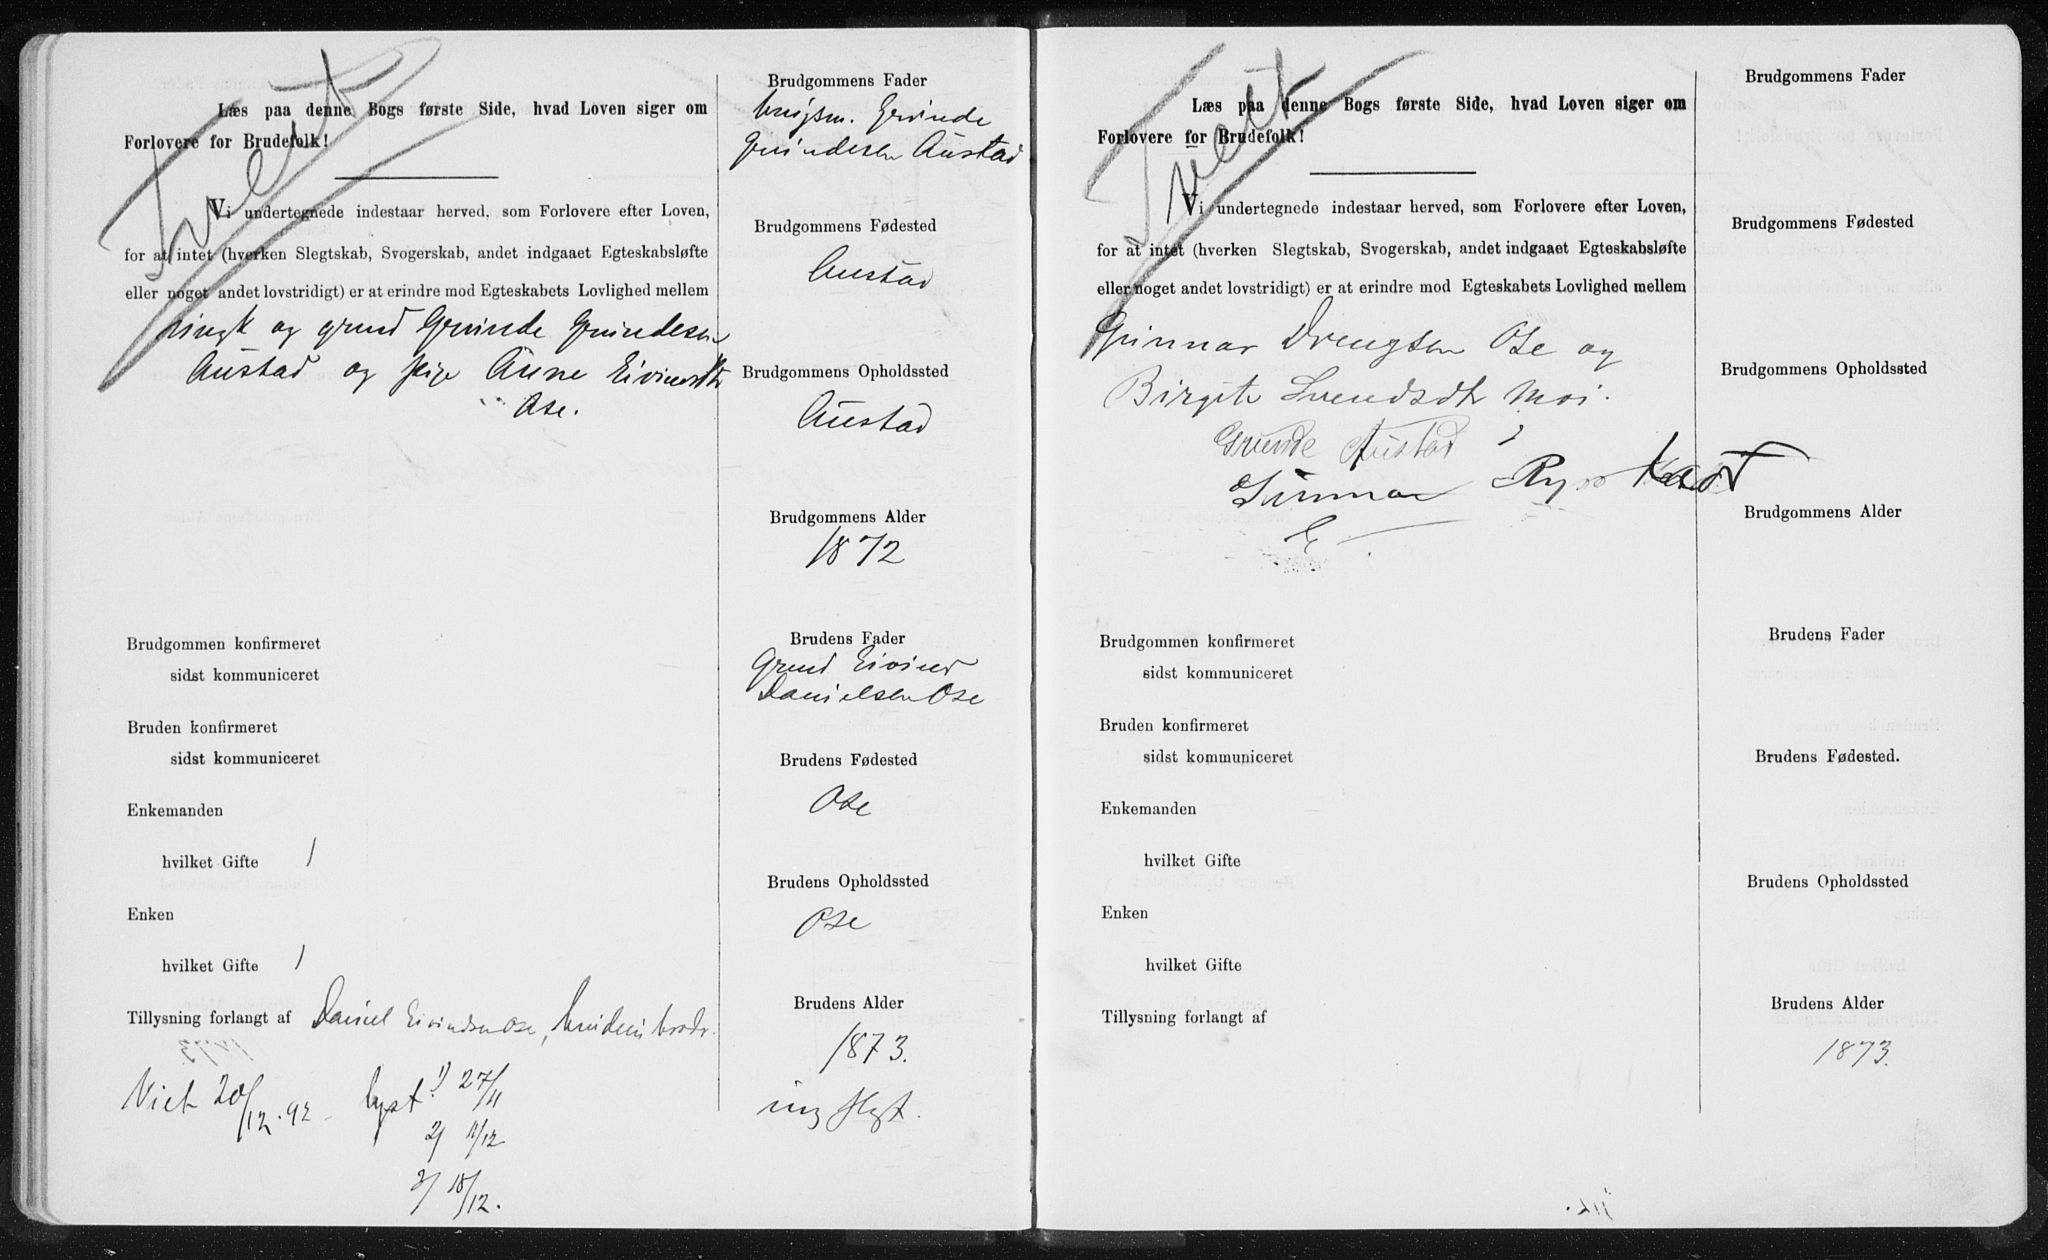 Tveit
Læs paa denne Bogs første Side, hvad Loven siger om
Forlovere for Brudefolk!
Vi undertegnede indestaar herved, som Forlovere efter Loven,
for at intet (hverken Slegtskab, Svogerskab, andet indgaaet Egteskabsløfte
eller noget andet lovstridigt) er at erindre mod Egteskabets Lovlighed mellem
og grmd
Austad og pige Anne Eivindsdtr
Ose.
Brudgommen konfirmeret
sidst kommuniceret
Bruden konfirmeret
sidst kommuniceret
Enkemanden
hvilket Gifte 1
Enken
hvilket Gifte 1
Tillysning forlangt af Daniel Eivindsen Ose, brudens brodr.
Viet 20/12.92 lyst 1) 27/11
2) 11/12
3) 18/12.
Brudgommens Fader
Austad
Brudgommens Fødested
Austad
Brudgommens Opholdssted
Austad
Brudgommens Alder
1872
Brudens Fader
Grmd Eivind
Danielsen Ose
Brudens Fødested
Ose
Brudens Opholdssted
Ose
Brudens Alder
1873.
ing slgt.
Tveit
Læs paa denne Bogs første Side, hvad Loven siger om
Forlovere for Brudefolk!
Vi undertegnede indestaar herved, som Forlovere efter Loven,
for at intet (hverken Slegtskab, Svogerskab, andet indgaaet Egteskabsløfte
eller noget andet lovstridigt) er at erindre mod Egteskabets Lovlighed mellem
Gunnar Drengsen Ose og
Birgit Svendsdtr Moi.
Grunde Austad
Gunnar
Brudgommen konfirmeret
sidst kommuniceret
Bruden konfirmeret
sidst kommuniceret
Enkemanden
hvilket Gifte
Enken
hvilket Gifte
Tillysning forlangt af
Brudgommens Fader
Brudgommens Fødested
Brudgommens Opholdssted
Brudgommens Alder
Brudens Fader
Brudens Fødested.
Brudens Opholdssted
Brudens Alder
1873.